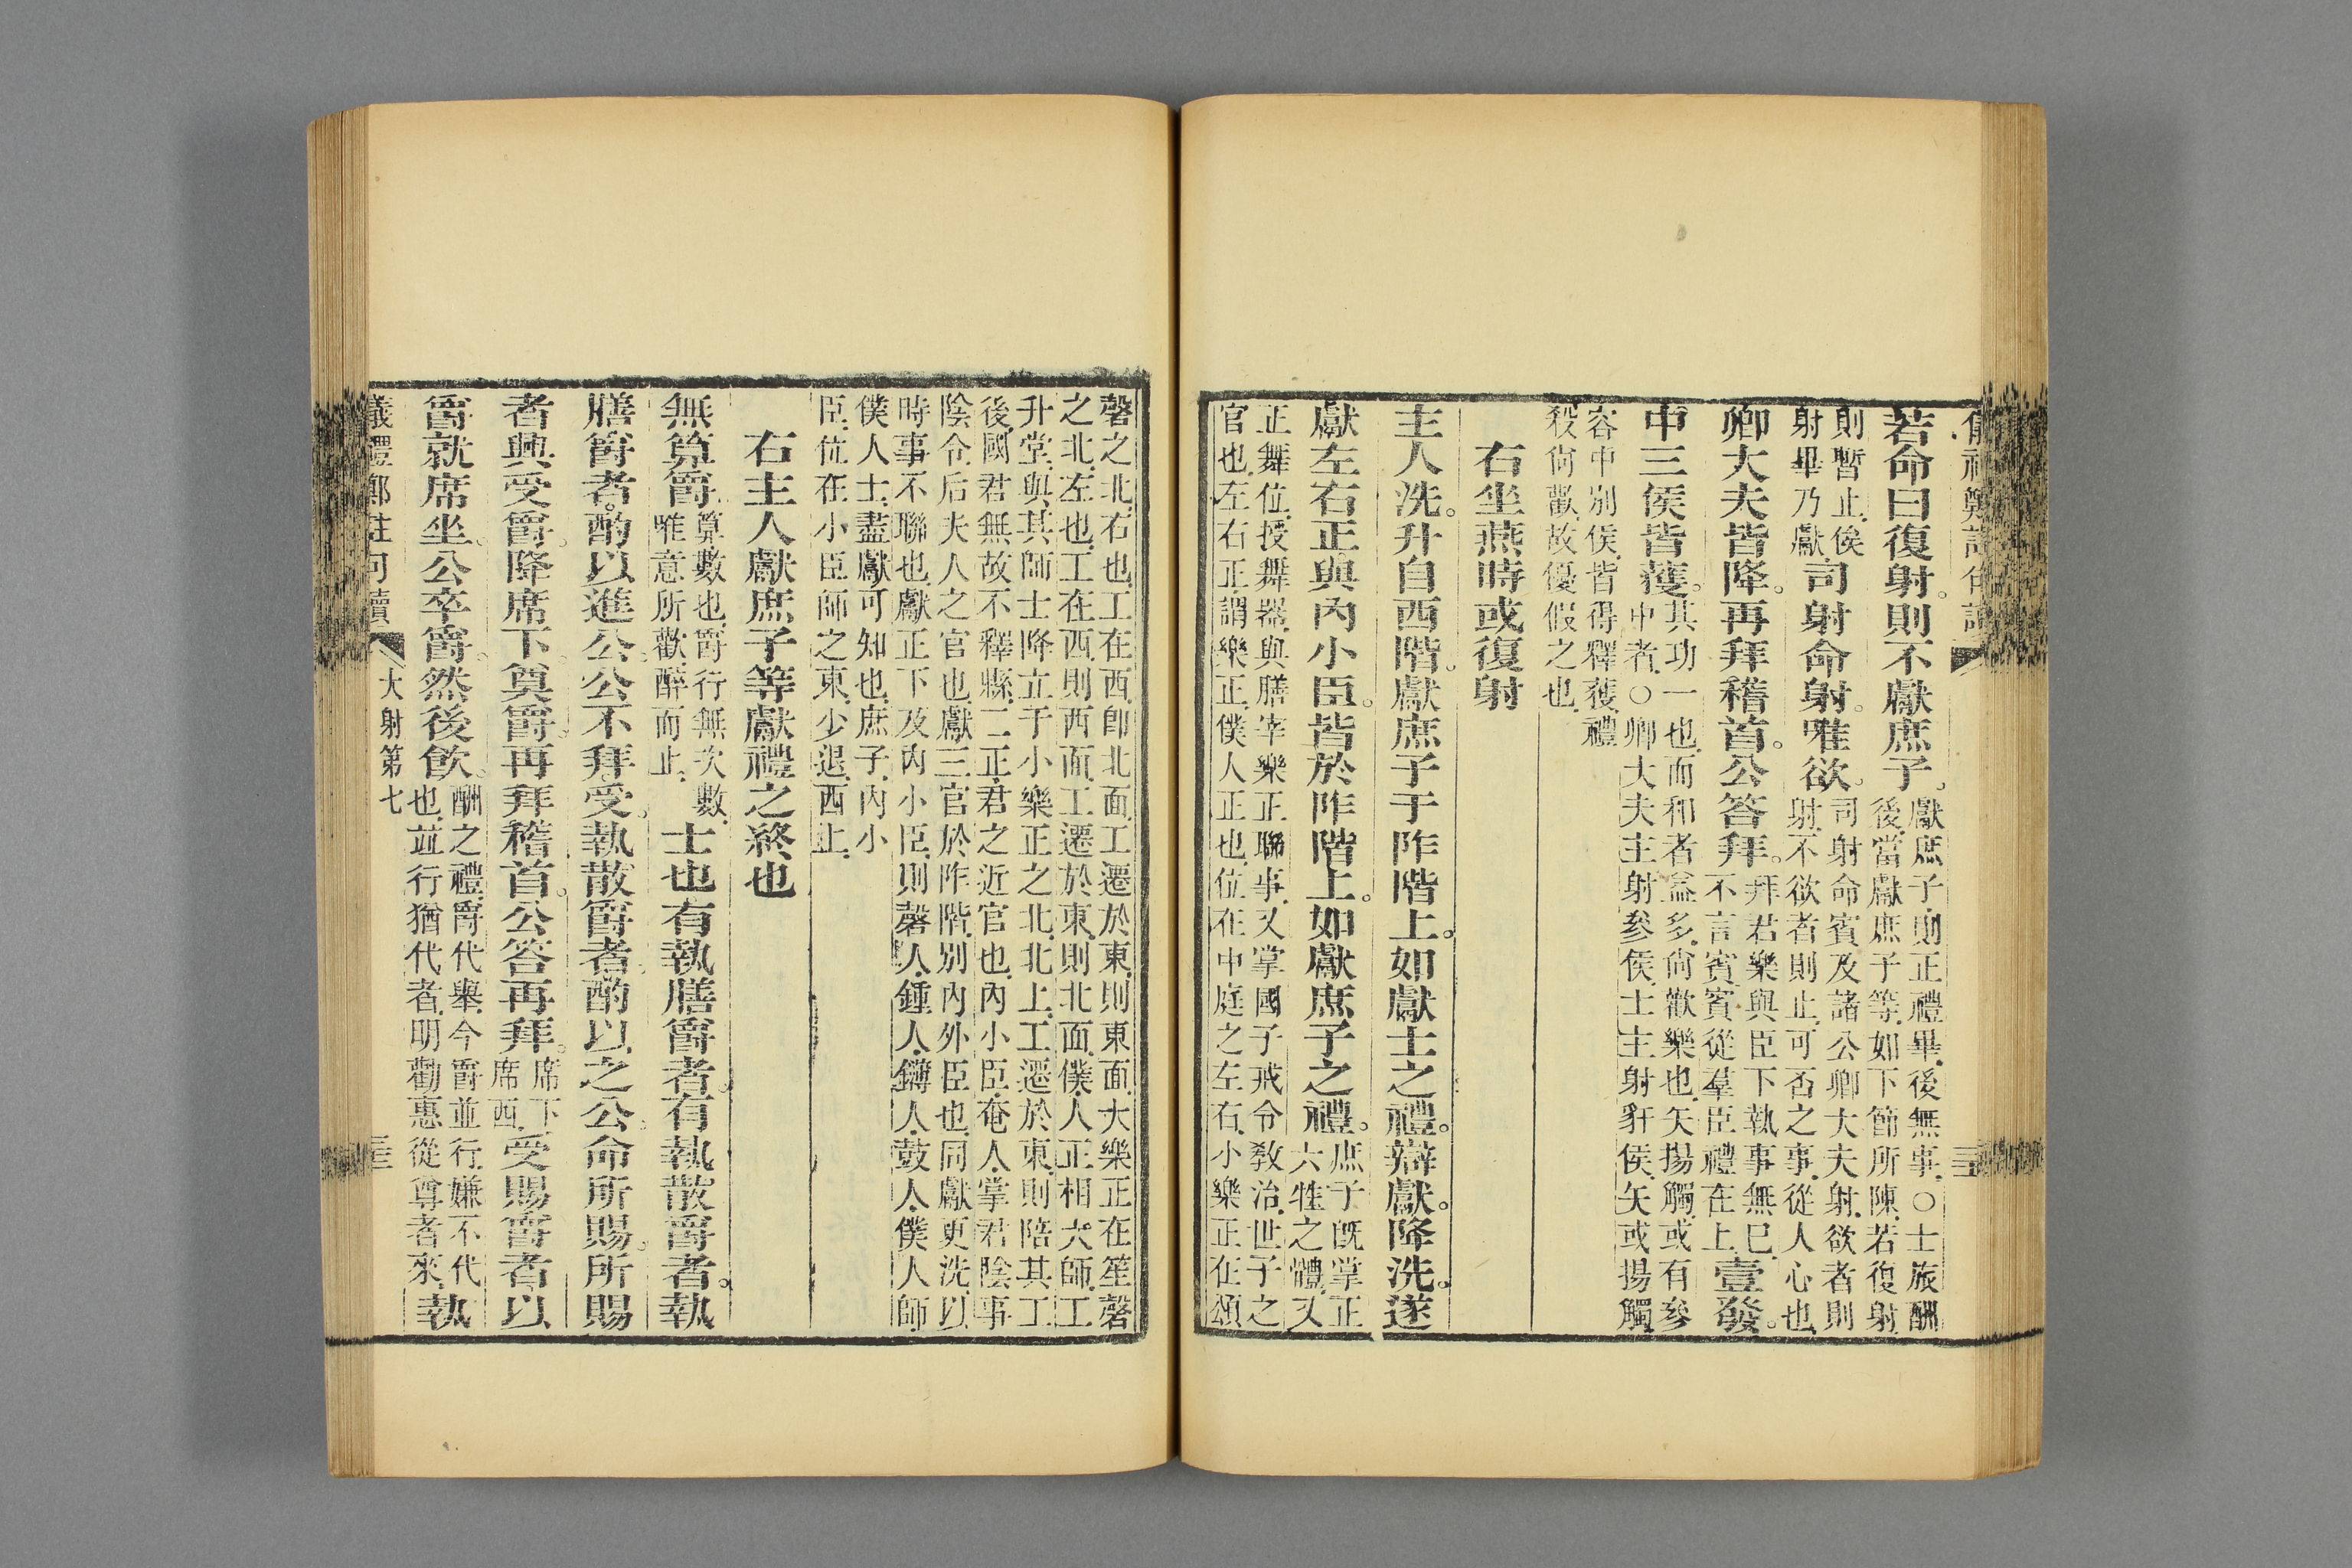 若命曰復射。則不獻庶子。獻庶子則正禮畢後無事○士旅酬後當獻庶子等如下節所陳若復射
則暫止俟射畢乃獻司射命射。唯欲。司射命賓及諸公卿大夫射欲者則射不欲者則止可否之事從人心也
卿大夫皆降。再拜稽首。公答拜。拜君樂與臣下執事無已不言賓賓從羣臣禮在上壹發。
中三侯皆獲。其功一也而和者益多尙歡樂也矢揚觸或有參中者○卿大夫主射參侯士主射豻侯矢或揚觸
容中別侯皆得釋獲禮殺尙歡故優假之也
右坐燕時或復射
主人洗。升自西階。獻庶子于阼階上。如獻士之禮。辯獻。降洗。遂
獻左右正與內小臣。皆於阼階上。如獻庶子之禮。庶子旣掌正六牲之體又
正舞位授舞器與膳宰樂正聯事又掌國子戒令敎治世子之官也左右正謂樂正僕人正也位在中庭之左右小樂正在頌
磬之北右也工在西卽北面工遷於東則東面大樂正在笙磬之北左也工在西則西面工遷於東則北面僕人正相大師工
升堂與其師士降立于小樂正之北北上工遷於東則陪其工後國君無故不釋縣二正君之近官也內小臣奄人掌君陰事
陰令后夫人之官也獻三官於阼階別內外臣也同獻更洗以時事不聯也獻正下及內小臣則磬人鍾人鑮人鼓人僕人師
僕人士盡獻可知也庶子內小臣位在小臣師之東少退西上
右主人獻庶子等獻禮之終也
無算爵。算數也爵行無次數唯意所歡醉而止士也。有執膳爵者。有執散爵者。執
膳爵者。酌以進公。公不拜受。執散爵者。酌以之公。命所賜。所賜
者興受爵。降席下。奠爵。再拜稽首。公答再拜。席下席西受賜爵者以
爵就席坐。公卒爵。然後飮。酬之禮爵代舉今爵並行嫌不代也並行猶代者明勸惠從尊者來執
儀禮鄭註句讀 大射第七